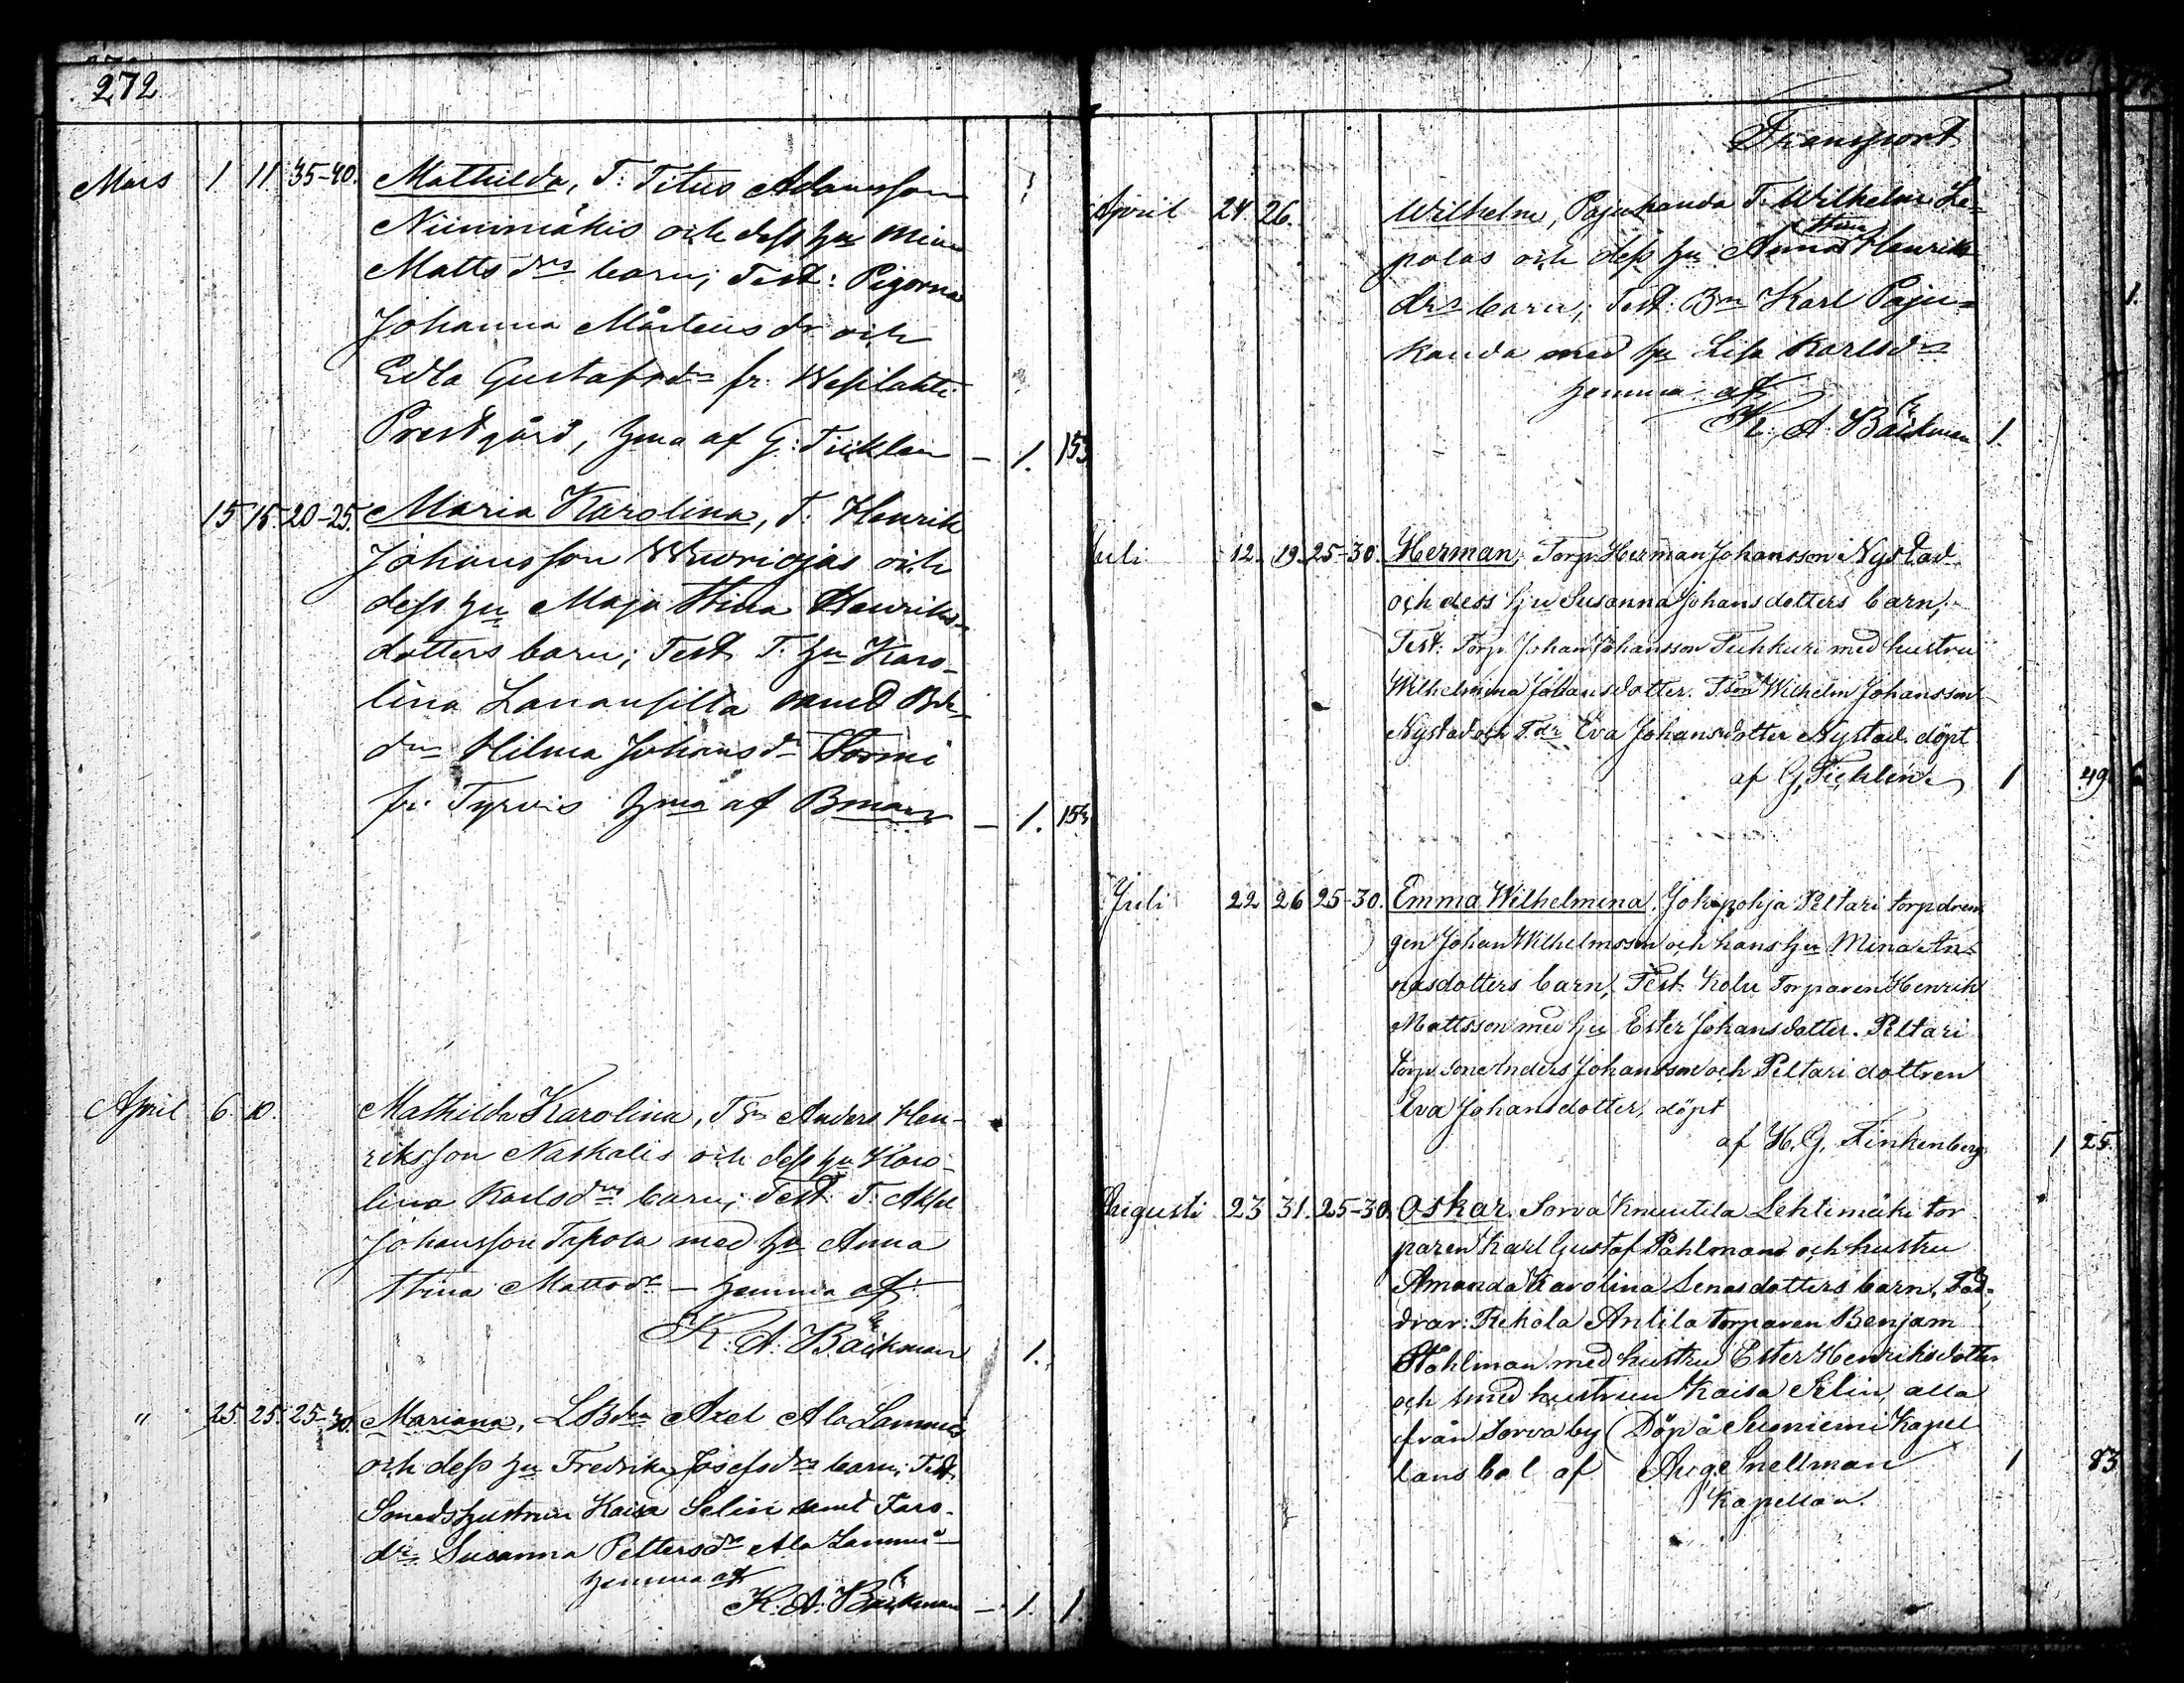 272
Mars 1 11 35-40. Mathilda, T: Titus Adamsson
Niinimäkis och dess hu Mina
Matts drs barn; Test: Pigorna
Johanna Mårtens dr och
Edla Gustafsdr fr. Wesilahti
Prestgård, hma af G: Ticklen — 1. 153
15 15. 20-25. Maria Karolina, T. Henrik
Johansson Wuoriojas och
dess hu Maja Stina Henriks-
dotters barn; Test T. hu Karo-
lina Lanansilta med
Hilma Johans dr Tormi
fr. Tyrvis hma af Bman — 1. 153
April 6 10. Mathilda Karolina, T Sn Anders Hen-
riksson Naskalis och dess hu Karo-
lina Karlsdrs barn; Test: T. Aksel
Johansson Tapola med hu Anna
Stina Mattsdr — hemma af:
K. A. Bäckman 1.
" 25. 25. 25-30. Mariana, LBdn Axel Ala Lammis
och dess hu Fredrika Josefsdrs barn; Test.
Smedshustrun Kaisa Selin samt Taro-
dr. Susanna Pettersdr Ala Lammi —
hemma af
K. A. Bäckman — 1. 1.
Transport
April 24 26. Wilhelm, Pajukanda T. Wilhelm Le-
Stina
polas och dess hu Anna Henriks
drs barn; Test: Bn Karl Paju-
kanda med hu Lisa Karlsdr 1.
hemma af
K. A. Bäckman 1.
Juli 12. 19. 25-30. Herman, Torp. Herman Johansson Nystad
och dess hju Susanna Johansdotters barn;
Test: Torp. Johan Johansson Tuhkuri med hustru
Wilhelmina Johansdotter. Wilhelm Johansson
Nystad och T.dr Eva Johansdotter Nystad. döpt
af G. Ticklén. 1 49.
Juli 22 26 25-30. Emma Wilhelmina. Jokipohja Peltari torpdren
gen Johan Wilhelmsson och hans hju Mina An-
nasdotters barn; Test. Kolu Torparen Henrik
Mattsson med hju Ester Johansdotter. Peltari
torp. son Anders Johansson och Peltari dottren
Eva Johansdotter, döpt
af H. G. Finkenberg 1 25.
Augusti 23 31. 25-30. Oskar. Sorva Knuutila Lehtimäki tor
paren Karl Gustaf Påhlmans och hustru
Amanda Karolina Lenasdotters barn, Fad-
drar: Rekola Anlila torparen Benjam
Ståhlman med hustru Ester Henriksdotter
och smed hustrun Kaisa Selin, alla
från Sorva by (Döp å Suoniemi Kapel
lans bol af Aug. Snellman 1 83
Kapellan.